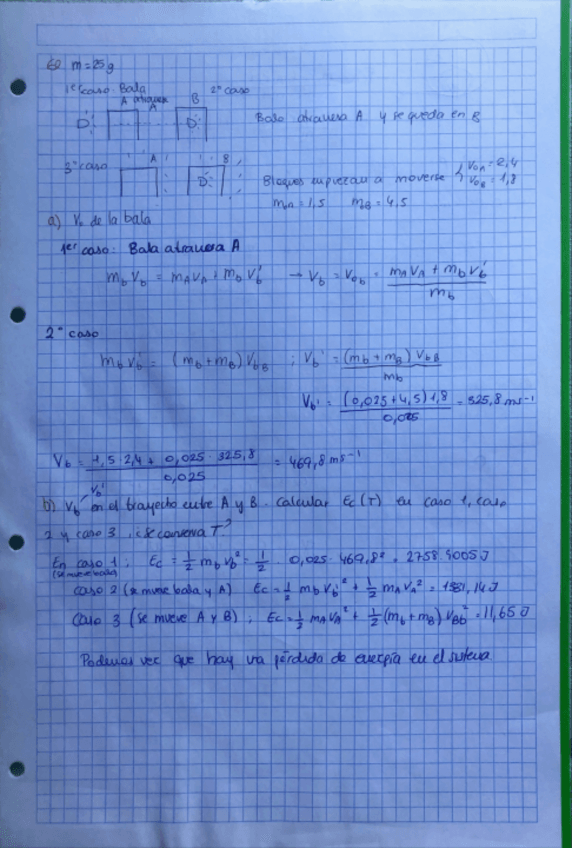 m = 25 g
1er caso. Bala atraviesa A
2º caso
A B
Bala atraviesa A y se queda en B
3º caso
A B
Bloques empiezan a moverse { V0A = 2,4
V0B = 1,8
mA = 1,5 mB = 4,5
a) V0 de la bala
1er caso: Bala atraviesa A
mb Vb = mA VA + mb Vb' → Vb = V0b = (mA VA + mb Vb') / mb
2º caso
mb Vb' = (mb + mB) VbB ; Vb' = (mb + mB) VbB / mb
Vb' = (0,025 + 4,5) 1,8 / 0,025 = 325,8 ms⁻¹
Vb = (1,5 · 2,4 + 0,025 · 325,8) / 0,025 = 469,8 ms⁻¹
b) Vb' en el trayecto entre A y B. Calcular Ec (T) en caso 1, caso
2 y caso 3, ¿se conserva T?
En caso 1: Ec = 1/2 mb Vb² = 1/2 · 0,025 · 469,8² = 2758.9005 J
(se mueve bala)
caso 2 (se mueve bala y A) Ec = 1/2 mb Vb'² + 1/2 mA VA² = 1331,14 J
Caso 3 (se mueve A y B); Ec = 1/2 mA VA² + 1/2 (mb + mB) VBb² = 11,65 J
Podemos ver que hay una pérdida de energía en el sistema